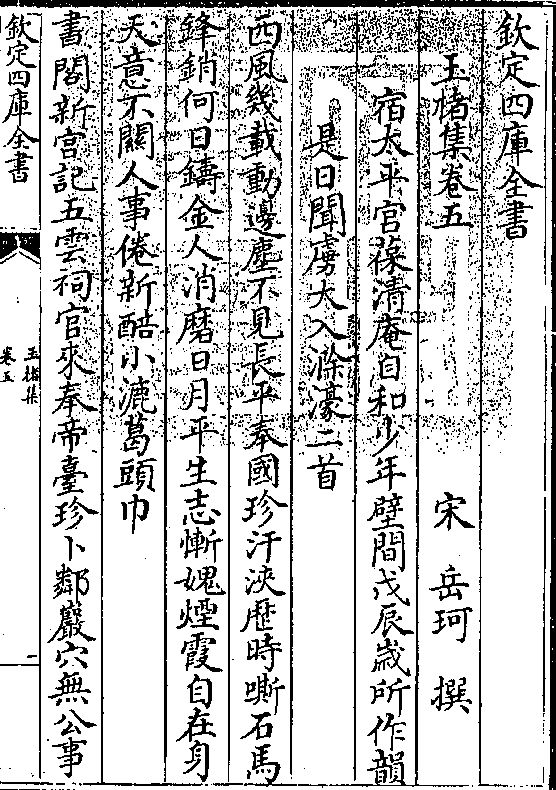 欽定四庫全書
玉楮集卷五
宋 岳珂 撰
宿太平宮葆清庵自和少年壁間戊辰歲所作韻
是日聞虜大入滁濠二首
西風幾載動邊塵不見長平奉國珍汗浹歴時嘶石馬
鋒銷何日鑄金人消磨日月平生志慚媿煙霞自在身
天意不關人事倦新醅小漉葛頭巾
書閣新宫記五雲祠官來奉帝臺珍卜鄰巖穴無公事
欽定四庫全書
玉楮集
卷五
一